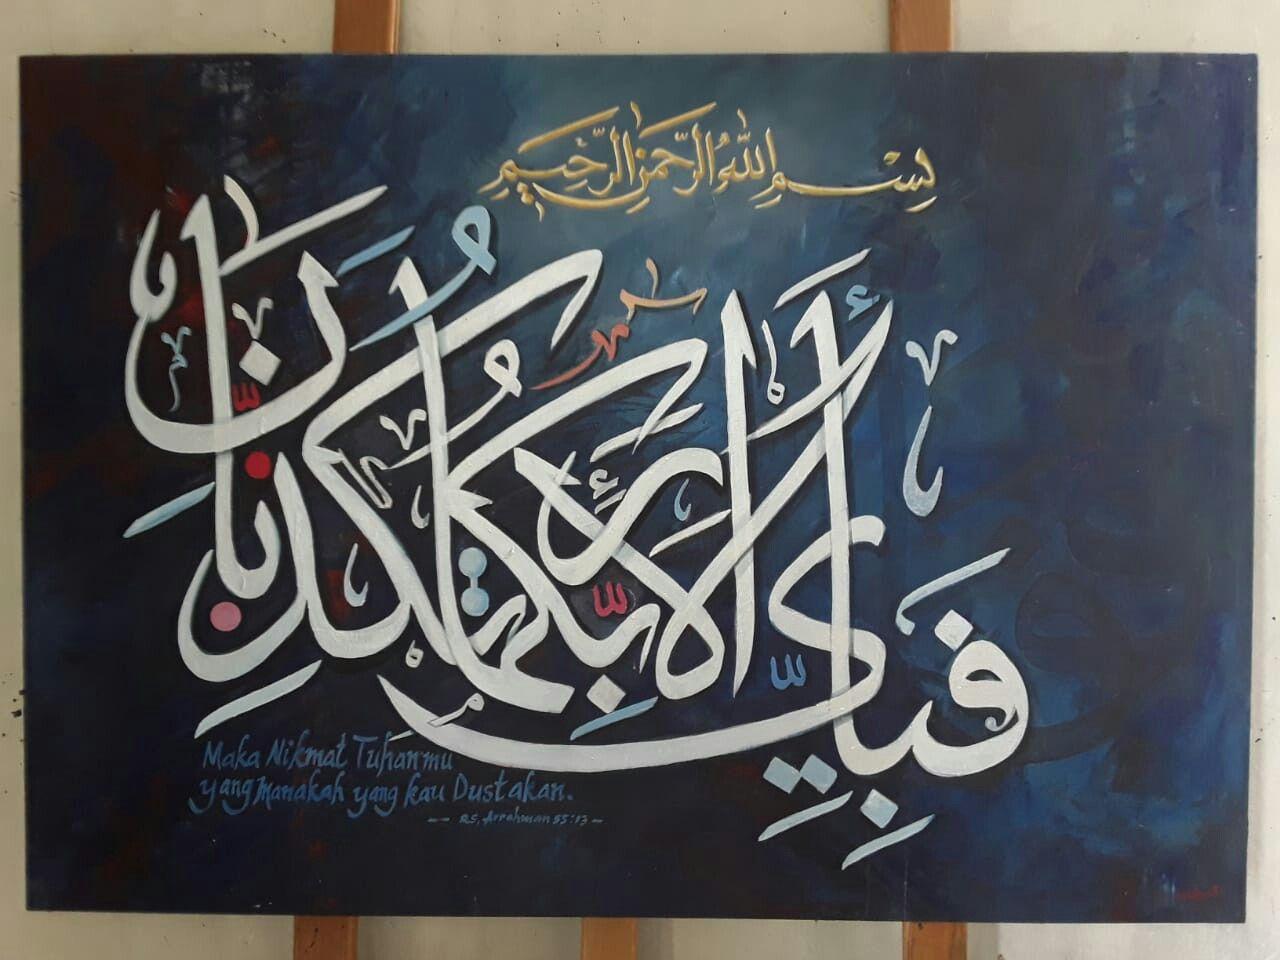 بِسْمِ اللهِ الرَّحْمنِ الرَّحِيمِ
فَبِأَيِّ آلَاءِ رَبِّكُمَا تُكَذِّبَانِ
Maka Nikmat Tuhanmu
yang manakah yang kau Dustakan.
-- QS, Arrahman 55:13 -